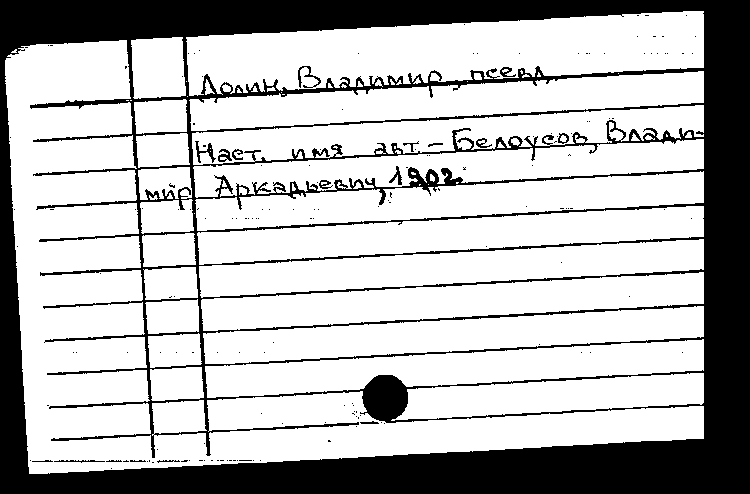 Долин, Владимир, псевд.
Наст. имя авт. – Белоусов, Влади-
мир Аркадьевич, 1902.